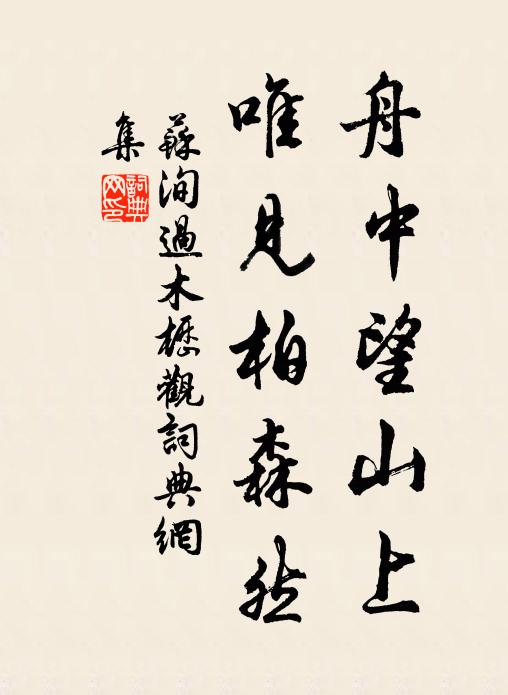 舟中望山上
唯見柏森然
蘇洵過木櫪觀詞典網
集
詞典
网印